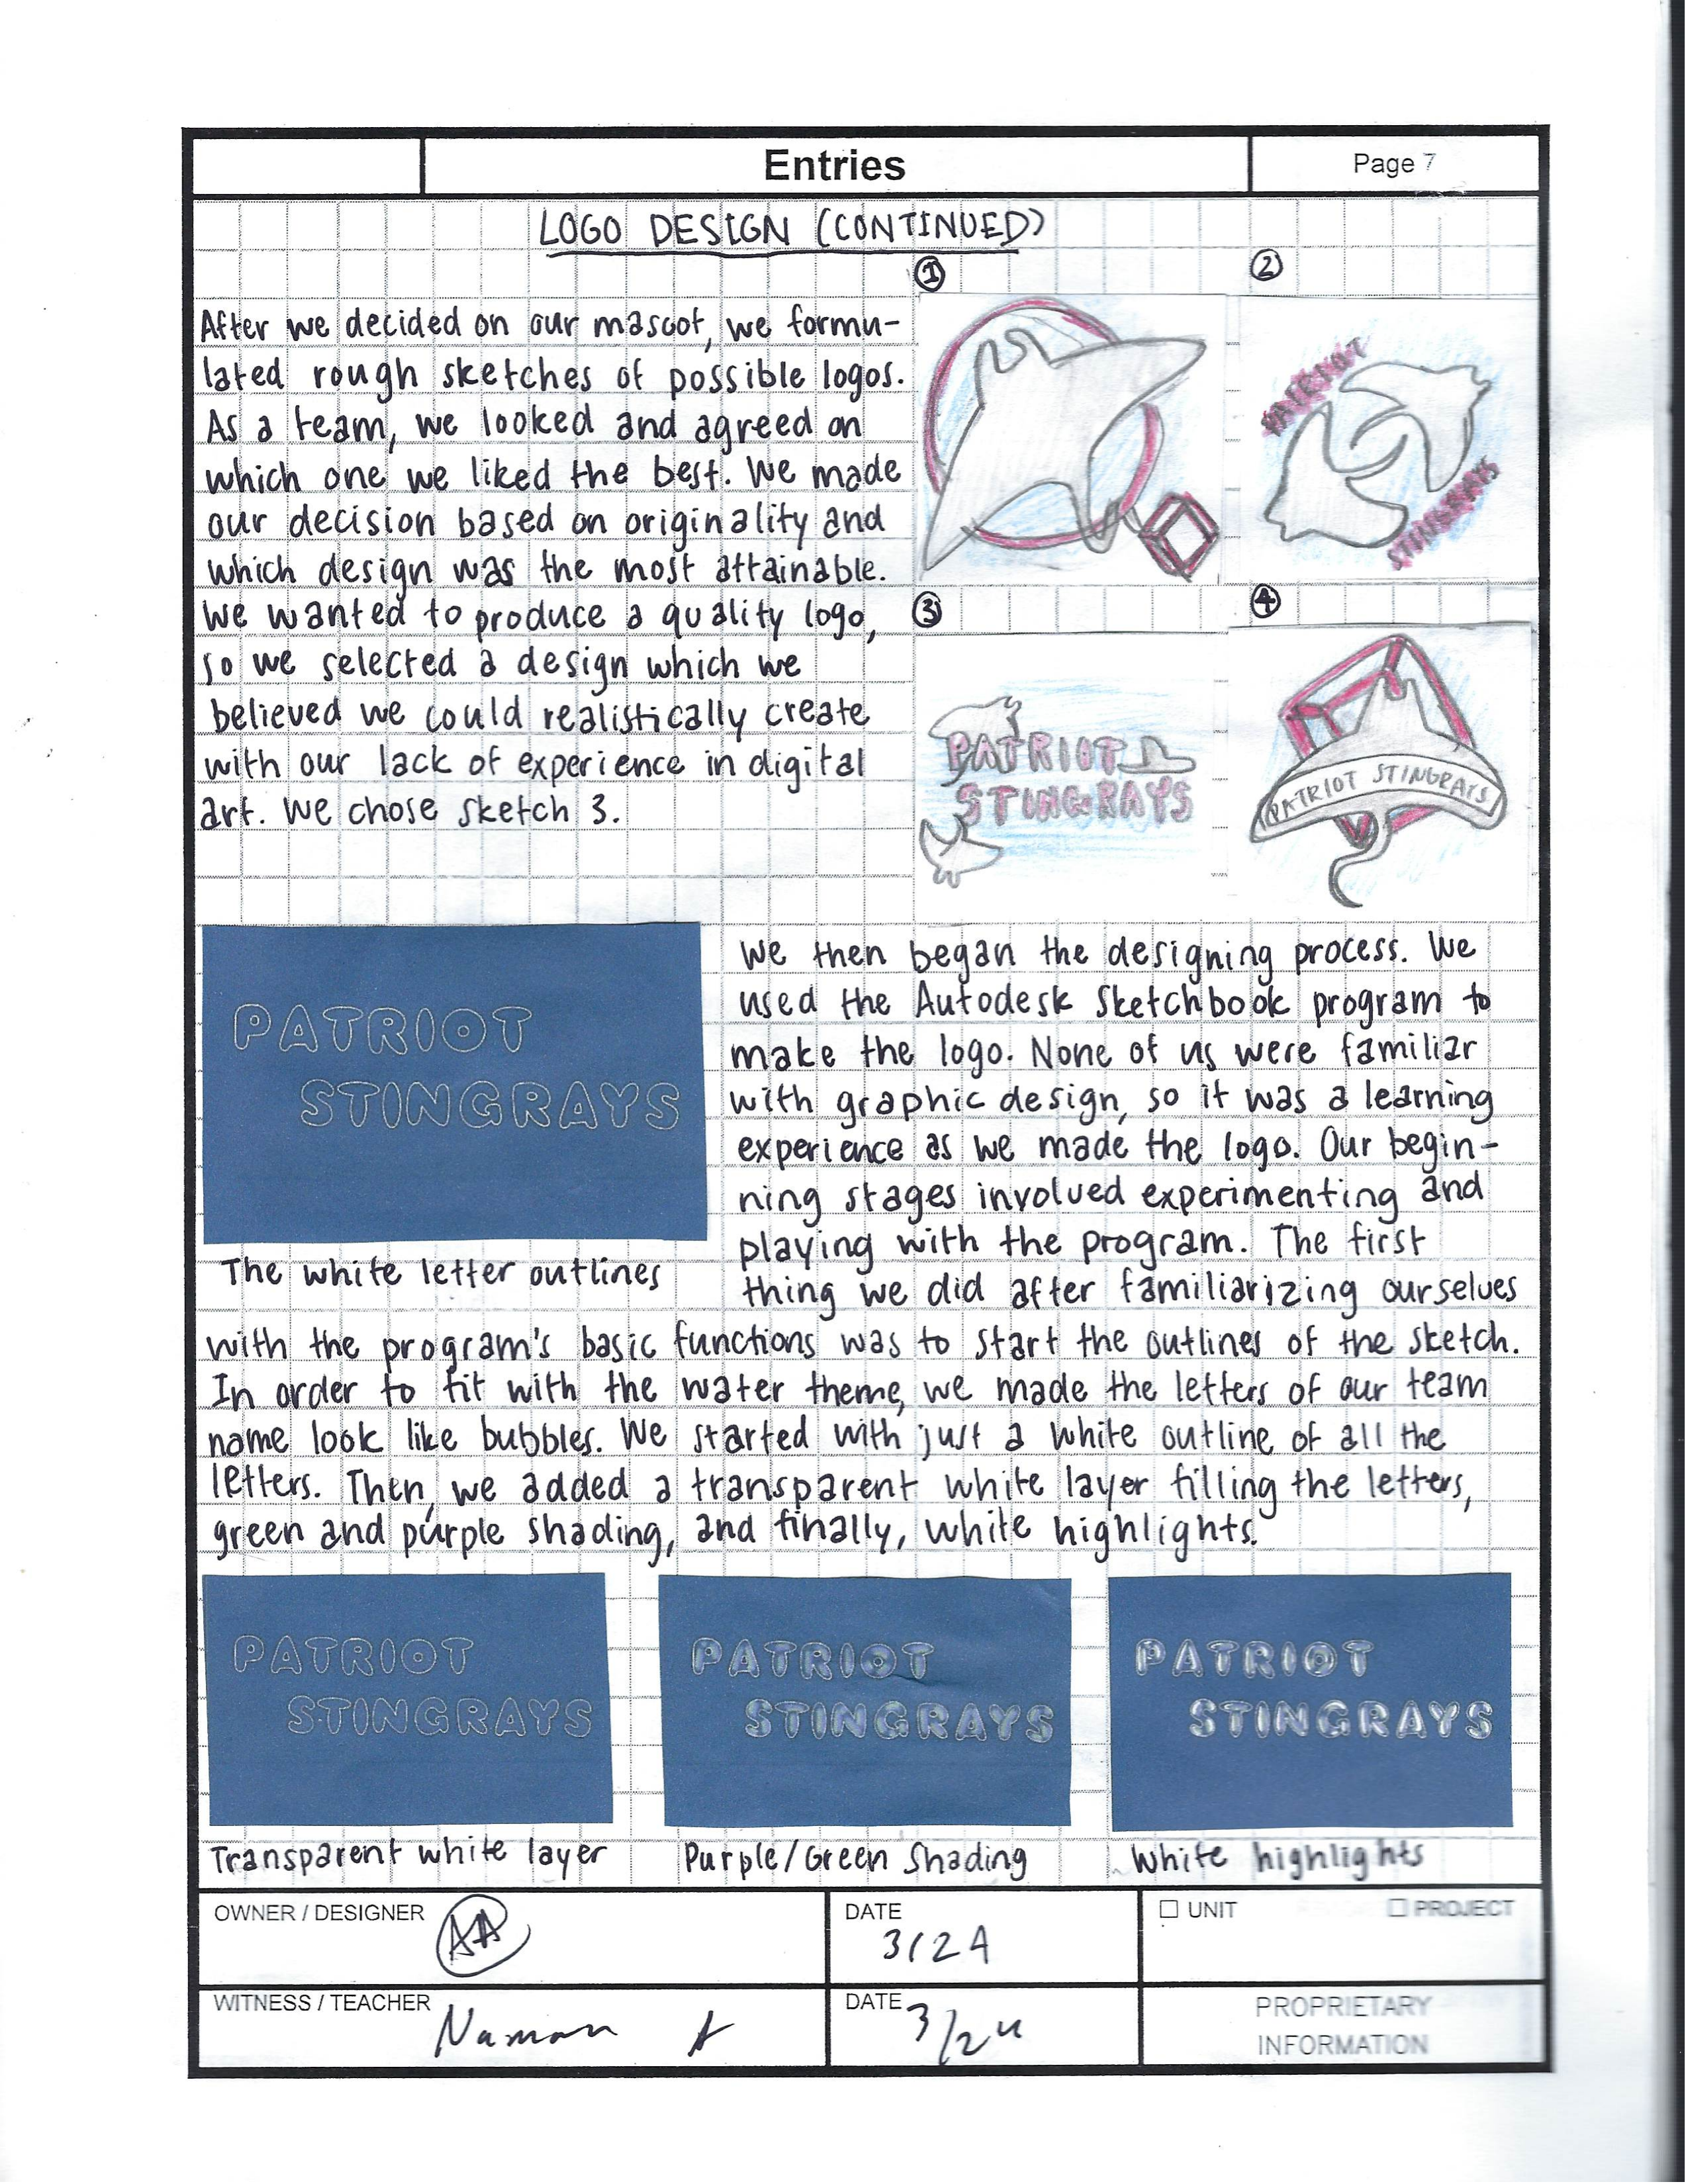 Entries
Page 7
LOGO DESIGN (CONTINUED)
After we decided on our mascot, we formu-
lated rough sketches of possible logos.
As a team, we looked and agreed on
which one we liked the best. We made
our decision based on originality and
which design was the most attainable.
We wanted to produce a quality logo,
so we selected a design which we
believed we could realistically create
with our lack of experience in digital
art. We chose sketch 3.
1
2
PATRIOT
STINGRAYS
3
PATRIOT
STINGRAYS
4
PATRIOT STINGRAYS
PATRIOT
STINGRAYS
The white letter outlines
We then began the designing process. We
used the Autodesk Sketchbook program to
make the logo. None of us were familiar
with graphic design, so it was a learning
experience as we made the logo. Our begin-
ning stages involved experimenting and
playing with the program. The first
thing we did after familiarizing ourselves
with the program's basic functions was to start the outlines of the sketch.
In order to fit with the water theme, we made the letters of our team
name look like bubbles. We started with just a white outline of all the
letters. Then, we added a transparent white layer filling the letters,
green and purple shading, and finally, white highlights.
PATRIOT
STINGRAYS
PATRIOT
STINGRAYS
PATRIOT
STINGRAYS
Transparent white layer
Purple/Green Shading
White highlights
OWNER / DESIGNER
AA
DATE
3/24
UNIT
PROJECT
WITNESS / TEACHER
Naman A
DATE
3/24
PROPRIETARY
INFORMATION